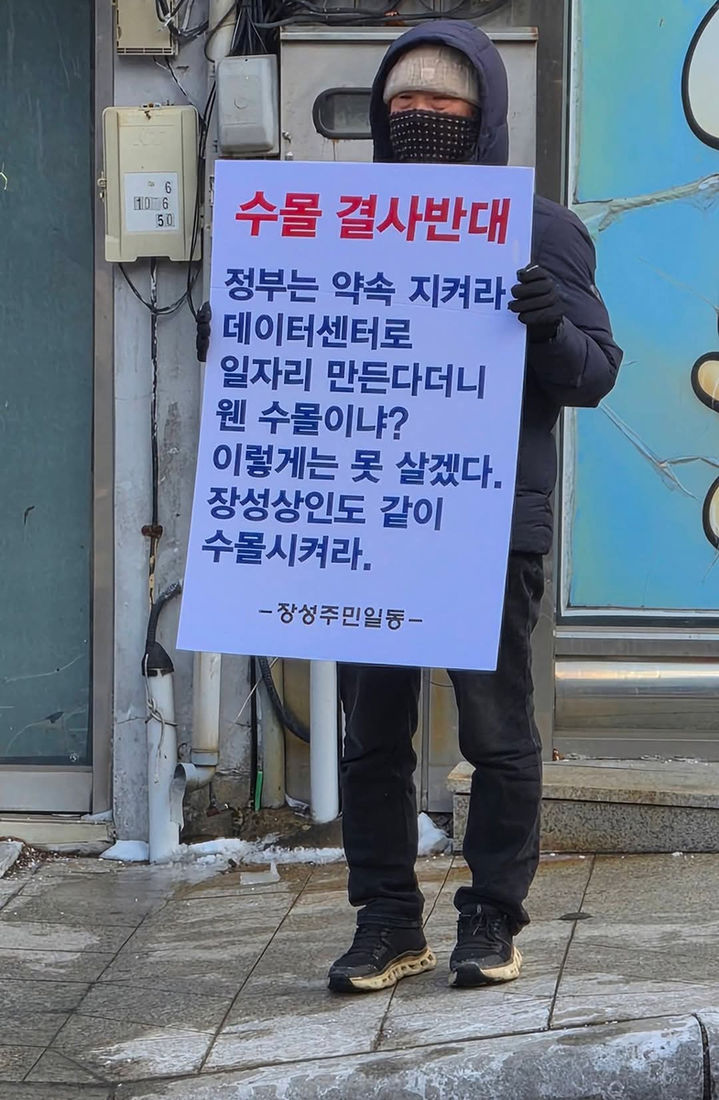 6
10 6
50
수몰 결사반대
정부는 약속 지켜라
데이터센터로
일자리 만든다더니
웬 수몰이냐?
이렇게는 못 살겠다.
장성상인도 같이
수몰시켜라.
-장성주민일동-